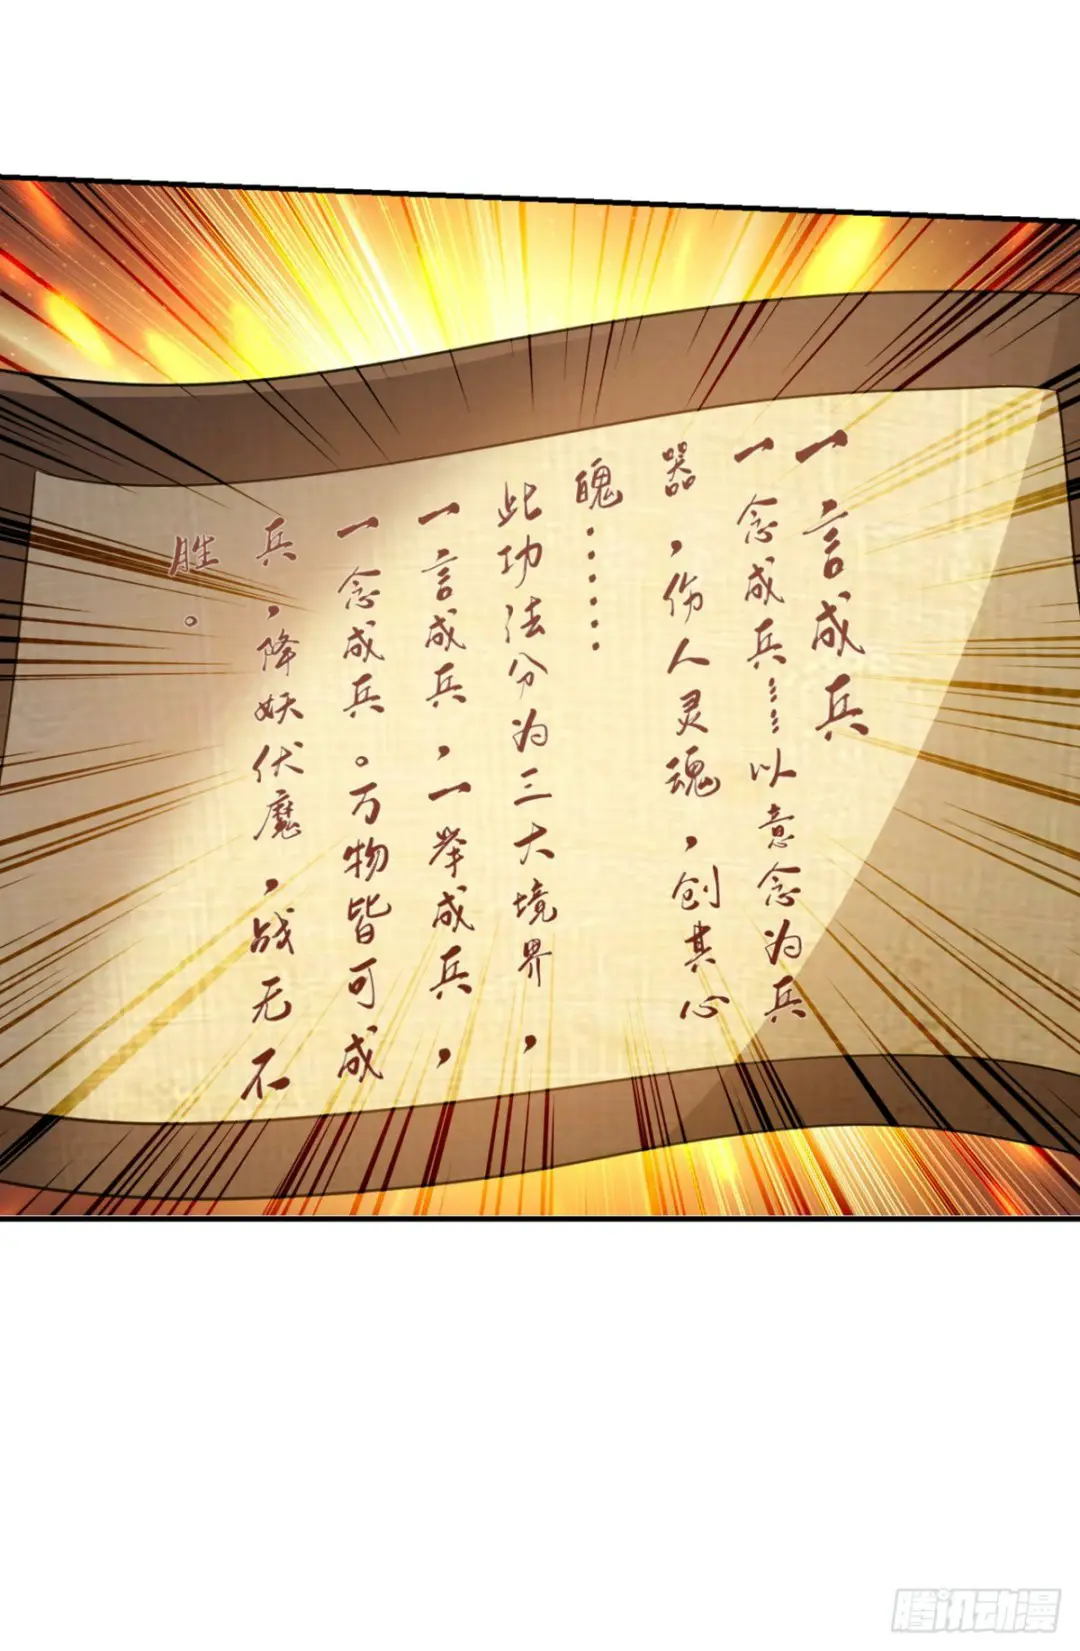 一言成兵
一念成兵……以意念为兵
器，伤人灵魂，创其心
魄……
此功法分为三大境界，
一言成兵，一举成兵，
一念成兵。万物皆可成
兵，降妖伏魔，战无不
胜。
腾讯动漫